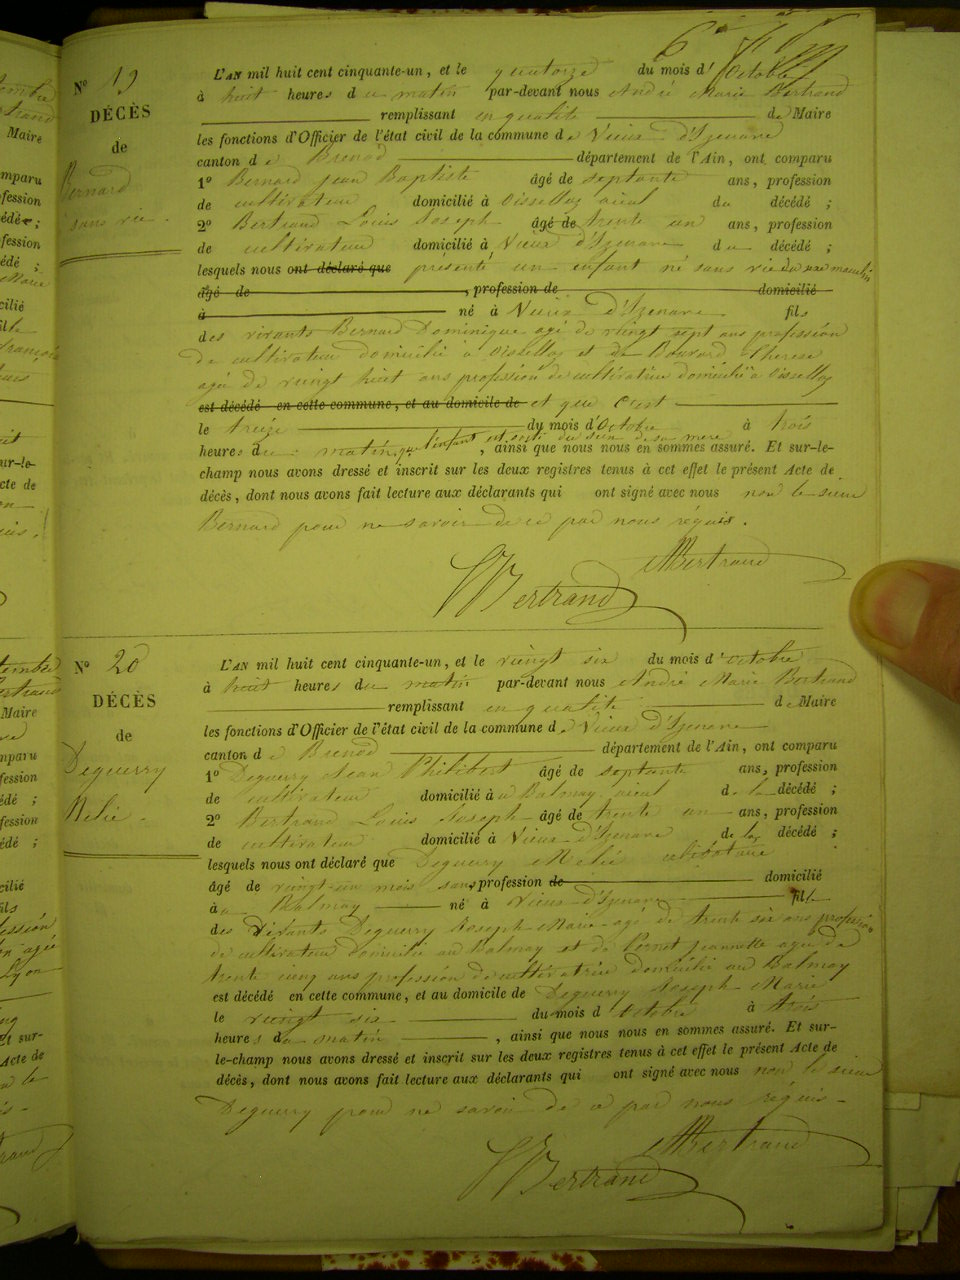 N° 19
DÉCÈS
de
Bernard
sans vie.
L'AN mil huit cent cinquante-un, et le quatorze du mois d'Octobre
à huit heures du matin par-devant nous André Marie Bertrand
remplissant en qualité de Maire
les fonctions d'Officier de l'état civil de la commune de Vieux d'Izenave
canton de Brenod département de l'Ain, ont comparu
1° Bernard Jean Baptiste âgé de septante ans, profession
de cultivateur domicilié à Oisselaz aieul du décédé ;
2° Bertrand Louis Joseph âgé de trente un ans, profession
de cultivateur domicilié à Vieux d'Izenave du décédé ;
lesquels nous ont déclaré que présenté un enfant né sans vie du sexe masculin
âgé de , profession de domicilié
à né à Vieux d'Izenave fils
des vivants Bernard Dominique agé de vingt sept ans profession
de cultivateur domicilié à Oisselaz et de Bouvard Therese
agée de vingt huit ans profession de cultivatrice domiciliée à Oisselaz
est décédé en cette commune, et au domicile de et que c'est
le treize du mois d'Octobre à trois
heures du matin que l'enfant est sorti du sein de sa mere , ainsi que nous nous en sommes assuré. Et sur-le-
champ nous avons dressé et inscrit sur les deux registres tenus à cet effet le présent Acte de
décès, dont nous avons fait lecture aux déclarants qui ont signé avec nous non le sieur
Bernard pour ne savoir de ce par nous réquis.
Bertrand
Bertrand
N° 20
DÉCÈS
de
Deguerry
Melie.
L'AN mil huit cent cinquante-un, et le vingt six du mois d'octobre
à huit heures du matin par-devant nous André Marie Bertrand
remplissant en qualité de Maire
les fonctions d'Officier de l'état civil de la commune de Vieux d'Izenave
canton de Brenod département de l'Ain, ont comparu
1° Deguerry Jean Philibert âgé de septante ans, profession
de cultivateur domicilié à au Balmay aieul de la décédé ;
2° Bertrand Louis Joseph âgé de trente un ans, profession
de cultivateur domicilié à Vieux d'Izenave de la décédé ;
lesquels nous ont déclaré que Deguerry Melie celibataire
âgé de vingt-un mois sans profession de domicilié
à au Balmay né à Vieux d'Izenave fille
des vivants Deguerry Joseph Marie agé de trente six ans profession
de cultivateur domicilié au Balmay et de Pernet Jeannette agée de
trente cinq ans profession de cultivatrice domiciliée au Balmay
est décédé en cette commune, et au domicile de Deguerry Joseph Marie
le vingt six du mois d'Octobre à trois
heures du matin , ainsi que nous nous en sommes assuré. Et sur-
le-champ nous avons dressé et inscrit sur les deux registres tenus à cet effet le présent Acte de
décès, dont nous avons fait lecture aux déclarants qui ont signé avec nous non le sieur
Deguerry pour ne savoir de ce par nous réquis
Bertrand
Bertrand